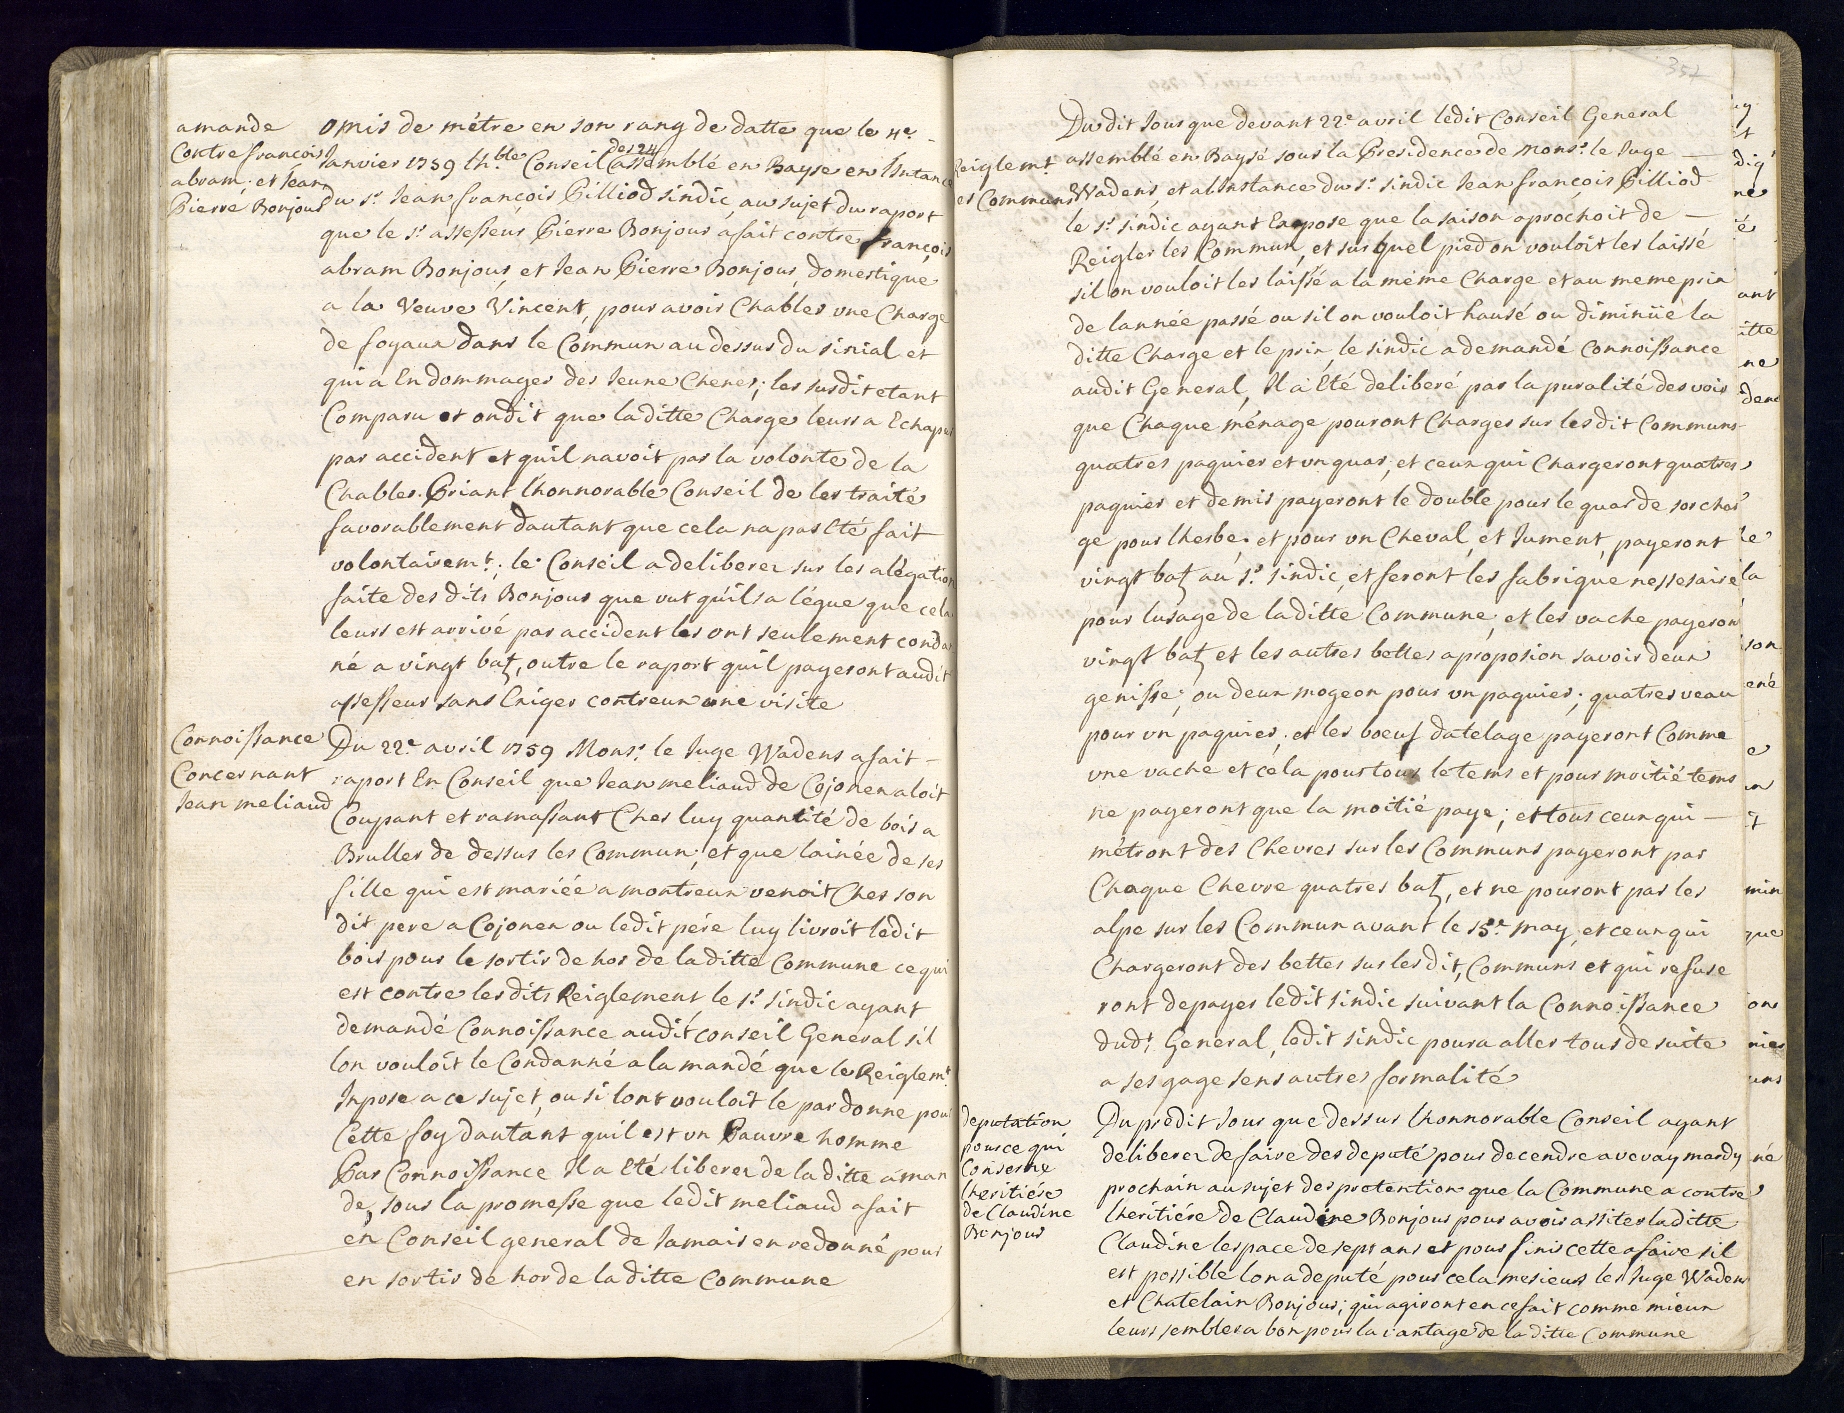 amande
Contre francois
abram, et Jean
Pierre Bonjour
omis de métre en son rang de datte que le 4e.
Janvier 1759 lh.ble Conseil des 24 assemblé en Bayse en lintance
du s.r Jean francois Pilliod sindic, au sujet du raport
que le s.r assesseur Pierre Bonjour afait contre francois
abram Bonjour, et Jean Pierre Bonjour domestique
a la Veuve Vincent, pour avoir Chabler vne Charge
de foyaux dans le Commun au dessus du sinial et
qui a Endommager des Jeune Chenes; les susdit etant
Comparu et ondit que laditte Charge leurs a Echaper
par accident et quil navoit pas la volonte de la
Chabler. Priant lhonnorable Conseil de les traité
favorablement dautant que cela na pas Eté fait
volontairem.t; le Conseil adeliberer sur les alégation
faite des dits Bonjour que vut quils a légue que cela
leurs est arrivé par accident les ont seulement condam
né a vingt batz, outre le raport quil payeront audit
assesseur sans Exiger contreux une visite
Connoissance
Concernant
Jean meliaud
Du 22e. avril 1759 Mons.r le Juge Wadens afait
raport En Conseil que Jean meliaud de Cojonex aloit
Coupant et ramassant Ches luy quantité de bois a
Bruller de dessus les Commun, et que lainée de ses
fille qui est mariée a montreux venoit Ches son
dit pere a Cojonex ou ledit pére luy livroit ledit
bois pour le sortir de hor de laditte Commune ce qui
est contre lesdits Reiglement le s.r sindic ayant
demandé Connoissance audit conseil General sil
lon vouloit le Condanné a lamandé que le Reiglem.t
Inpose a ce sujet, ou si lont vouloit le pardonne pour
Cette foy dautant quil est vn Pauvre homme
Par Connoissance Il a Eté liberer de la ditte aman
de, sous la promesse que ledit meliaud afait
en Conseil general de Jamais en redonné pour
en sortir de hor de la ditte Commune
357
Reiglem.t
es Communs
Du dit Jour que devant 22e. avril ledit Conseil General
assemblé en Baysé sous la Presidence de Mons.r le Juge
Wadens, et a linstance du s.r sindic Jean francois Pilliod
le s.r sindic ayant Expose que la saison aprochoit de
Reigler les Commun, et sur quel pied on vouloit les laissé
sil on vouloit les laissé a la méme Charge et au meme prix
de lannée passé ou sil on vouloit hausé ou diminüé la
ditte Charge et le prix, le sindic a demandé Connoissance
audit General, Il a Eté deliberé par la puralité des vois
que Chaque ménage pouront Charger sur lesdit Communs
quatres paquier et vn quar, et ceux qui Chargeront quatres
paquier et demis payeront le double pour le quar de sorchar
ge pour lherbe. et pour vn Cheval, et Jument, payeront
vingt batz au s.r sindic, et feront les fabrique nessesaire
pour lusage de laditte Commune, et les vache payeron
vingt batz et les autres bettes aproposion savoir deux
genisse, ou deux mogeon pour vn paquier, quatres veau
pour vn paquier, et les boeuf datelage payeront Comme
vne vache et cela pour tous le tems et pour moitié tems
ne payeront que la moitié paye; et tous ceux qui
métront des Chevres sur les Communs payeront par
Chaque Chevre quatres batz, et ne pouront pas les
alpe sur les Commun avant le 15e. may, et ceux qui
Chargeront des bettes sur lesdit, Communs et qui refuse
ront de payer ledit sindic suivant la Connoissance
dud.t General, ledit sindic poura aller tous de suite
a ses gage sens autres formalité
deputation
pour ce qui
Conserne
lheritiére
de Claudine
Bonjour
Du predit Jour que dessus lhonnorable Conseil ayant
deliberer de faire des deputé pour decendre a vevay mardy
prochain au sujet des pretention que la Commune a contre
lheritiére de Claudine Bonjour pour avoir assiter laditte
Claudine lespace de sept ans et pour finir cette afaire sil
est possible lon a deputé pour cela mesieurs les Juge Wadens
et Chatelain Bonjour; qui agiront en ce fait comme mieux
leurs semblera bon pour lavantage de la ditte Commune